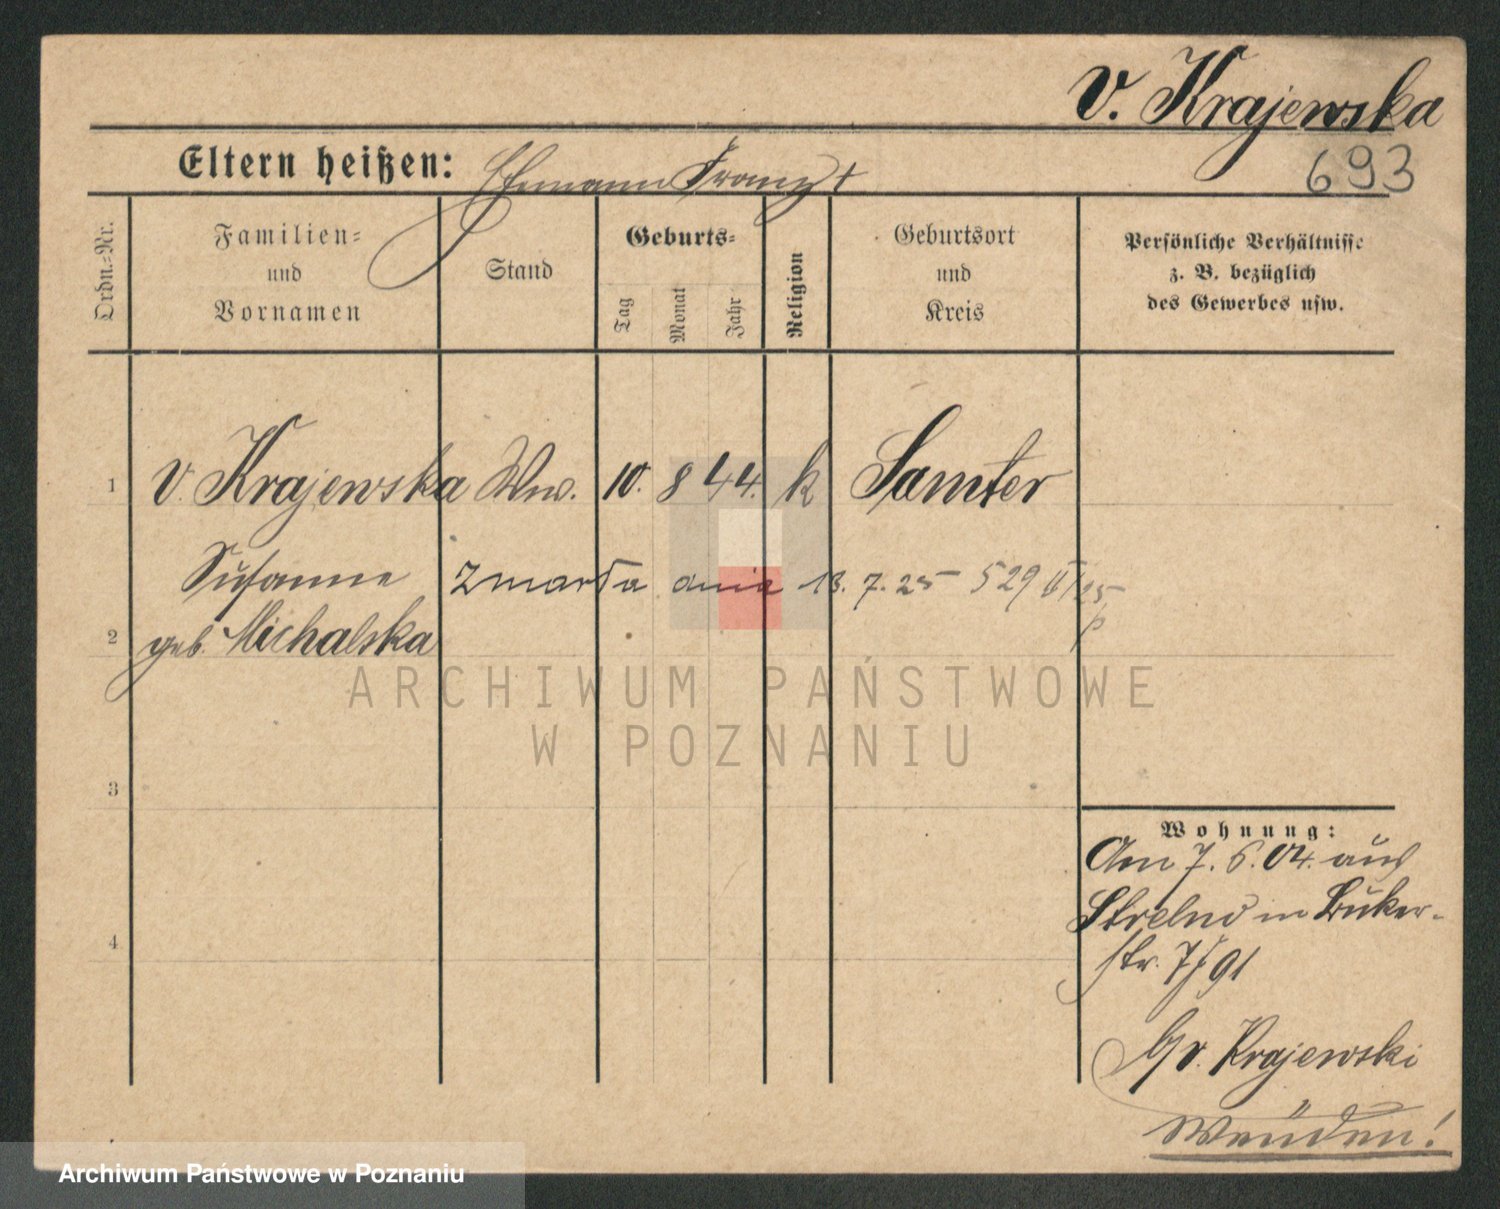 v. Krajewska
693
Eltern heißen: Ehemann Franz †
Ordn.-Nr.
Familien-
und
Vornamen
Stand
Geburts-
Tag
Monat
Jahr
Religion
Geburtsort
und
Kreis
Persönliche Verhältnisse
z. B. bezüglich
des Gewerbes usw.
1 v. Krajewska Ww. 10. 8 44. k Samter
Susanne zmarła dnia 13. 7. 25 529 II/25
2 geb. Michalska
3
4
ARCHIWUM PAŃSTWOWE
W POZNANIU
Wohnung:
Am 7. 6. 04. aus
Strelno in Buker-
str. 7/I 91
v. Krajewski
Wenden!
Archiwum Państwowe w Poznaniu